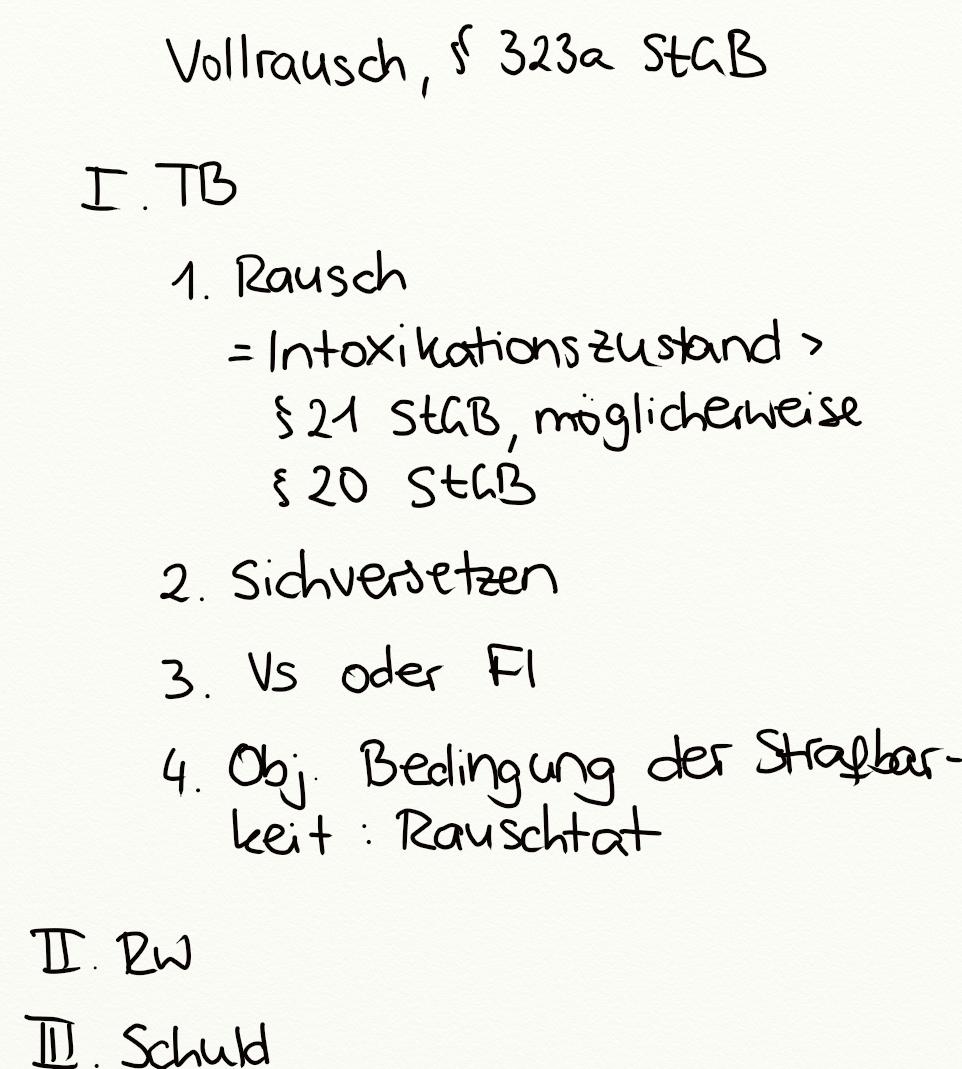 Vollrausch, § 323a StGB
I. TB
1. Rausch
= Intoxikationszustand >
§ 21 StGB, möglicherweise
§ 20 StGB
2. Sichversetzen
3. Vs oder Fl
4. Obj. Bedingung der Strafbar-
keit : Rauschtat
II. RW
III. Schuld